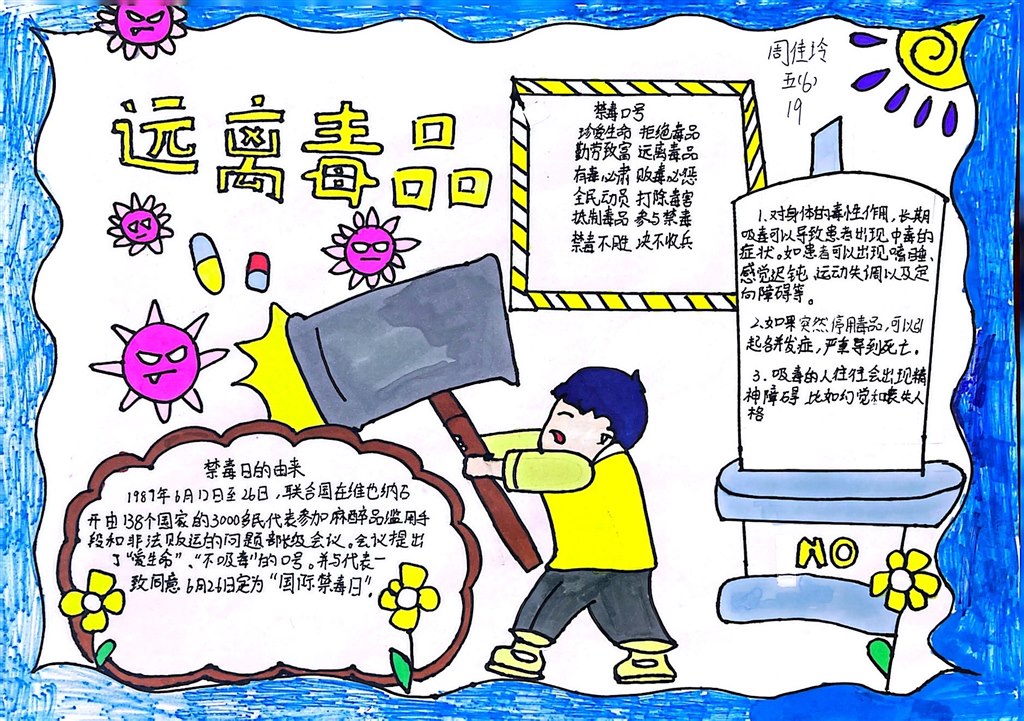 远离毒品
周佳玲
五(6)
19
禁毒口号
珍爱生命 拒绝毒品
勤劳致富 远离毒品
有毒必肃 贩毒必惩
全民动员 打除毒害
抵制毒品 参与禁毒
禁毒不胜 决不收兵
1.对身体的毒性作用,长期
吸毒可以导致患者出现中毒的
症状。如患者可以出现嗜睡、
感觉迟钝、运动失调以及定
向障碍等。
2.如果突然停用毒品,可以引
起各并发症,严重导到死亡。
3.吸毒的人往往会出现精
神障碍,比如幻觉和丧失人
格
禁毒日的由来
1987年6月12日至26日,联合国在维也纳召
开由138个国家的3000多民代表参加麻醉品滥用手
段和非法贩运的问题部级会议。会议提出
了“爱生命”、“不吸毒”的口号。并与代表一
致同意6月26日定为“国际禁毒日”。
NO